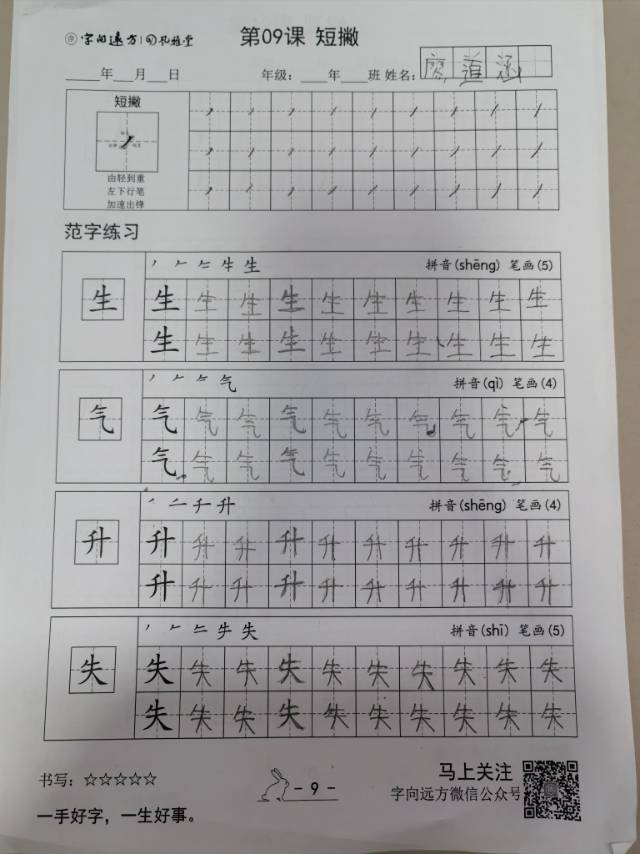 字向远方 第09课 短撇
年 月 日 年级: 年 班 姓名: 道涵
短撇
由轻到重
左下行笔
加速出锋
范字练习
生 拼音(shēng) 笔画(5)
生 生 生 生 生 生 生 生 生 生 生
生 生 生 生 生 生 生 生 生 生
气 拼音(qì) 笔画(4)
气 气 气 气 气 气 气 气 气 气 气
气 气 气 气 气 气 气 气 气 气
升 拼音(shēng) 笔画(4)
升 升 升 升 升 升 升 升 升 升 升
升 升 升 升 升 升 升 升 升 升
失 拼音(shī) 笔画(5)
失 失 失 失 失 失 失 失 失 失 失
失 失 失 失 失 失 失 失 失 失
书写: ☆☆☆☆☆ - 9 - 马上关注
字向远方微信公众号
一手好字，一生好事。